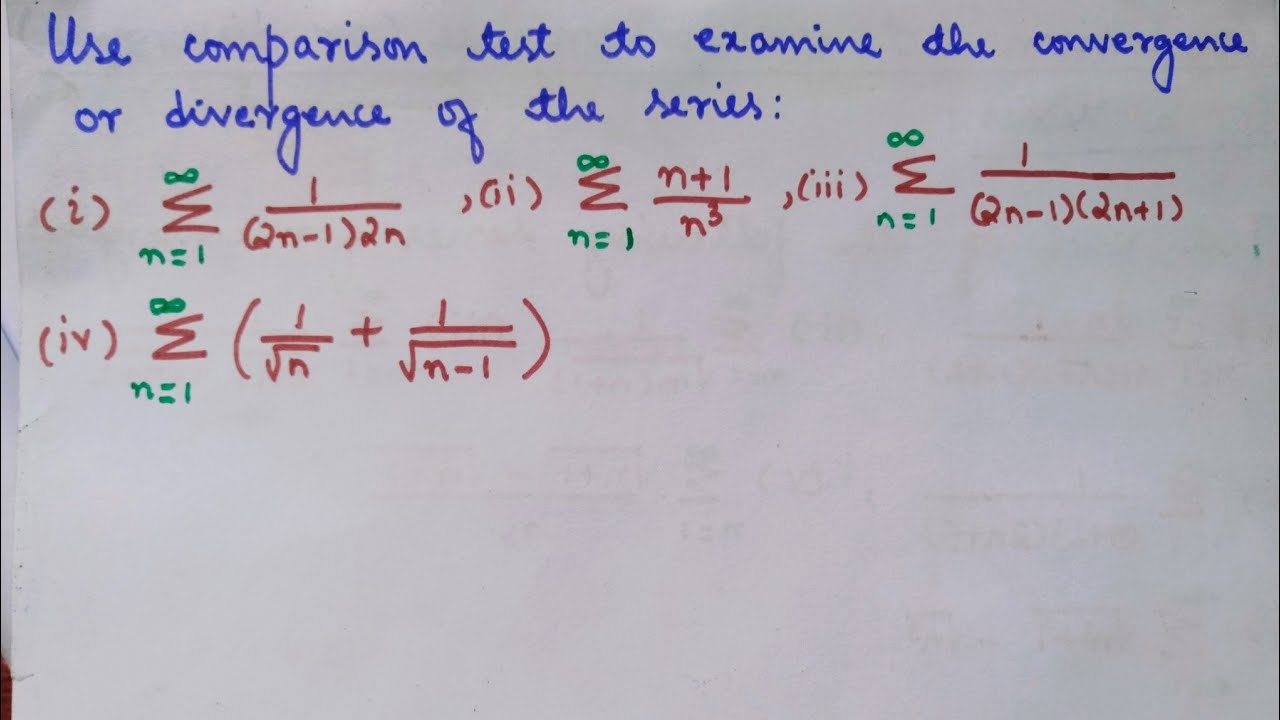 Use comparison test to examine the convergence
or divergence of the series:
(i) ∞ Σ n=1 1/((2n-1)2n) , (ii) ∞ Σ n=1 (n+1)/n³ , (iii) ∞ Σ n=1 1/((2n-1)(2n+1))
(iv) ∞ Σ n=1 (1/√n + 1/√(n-1))